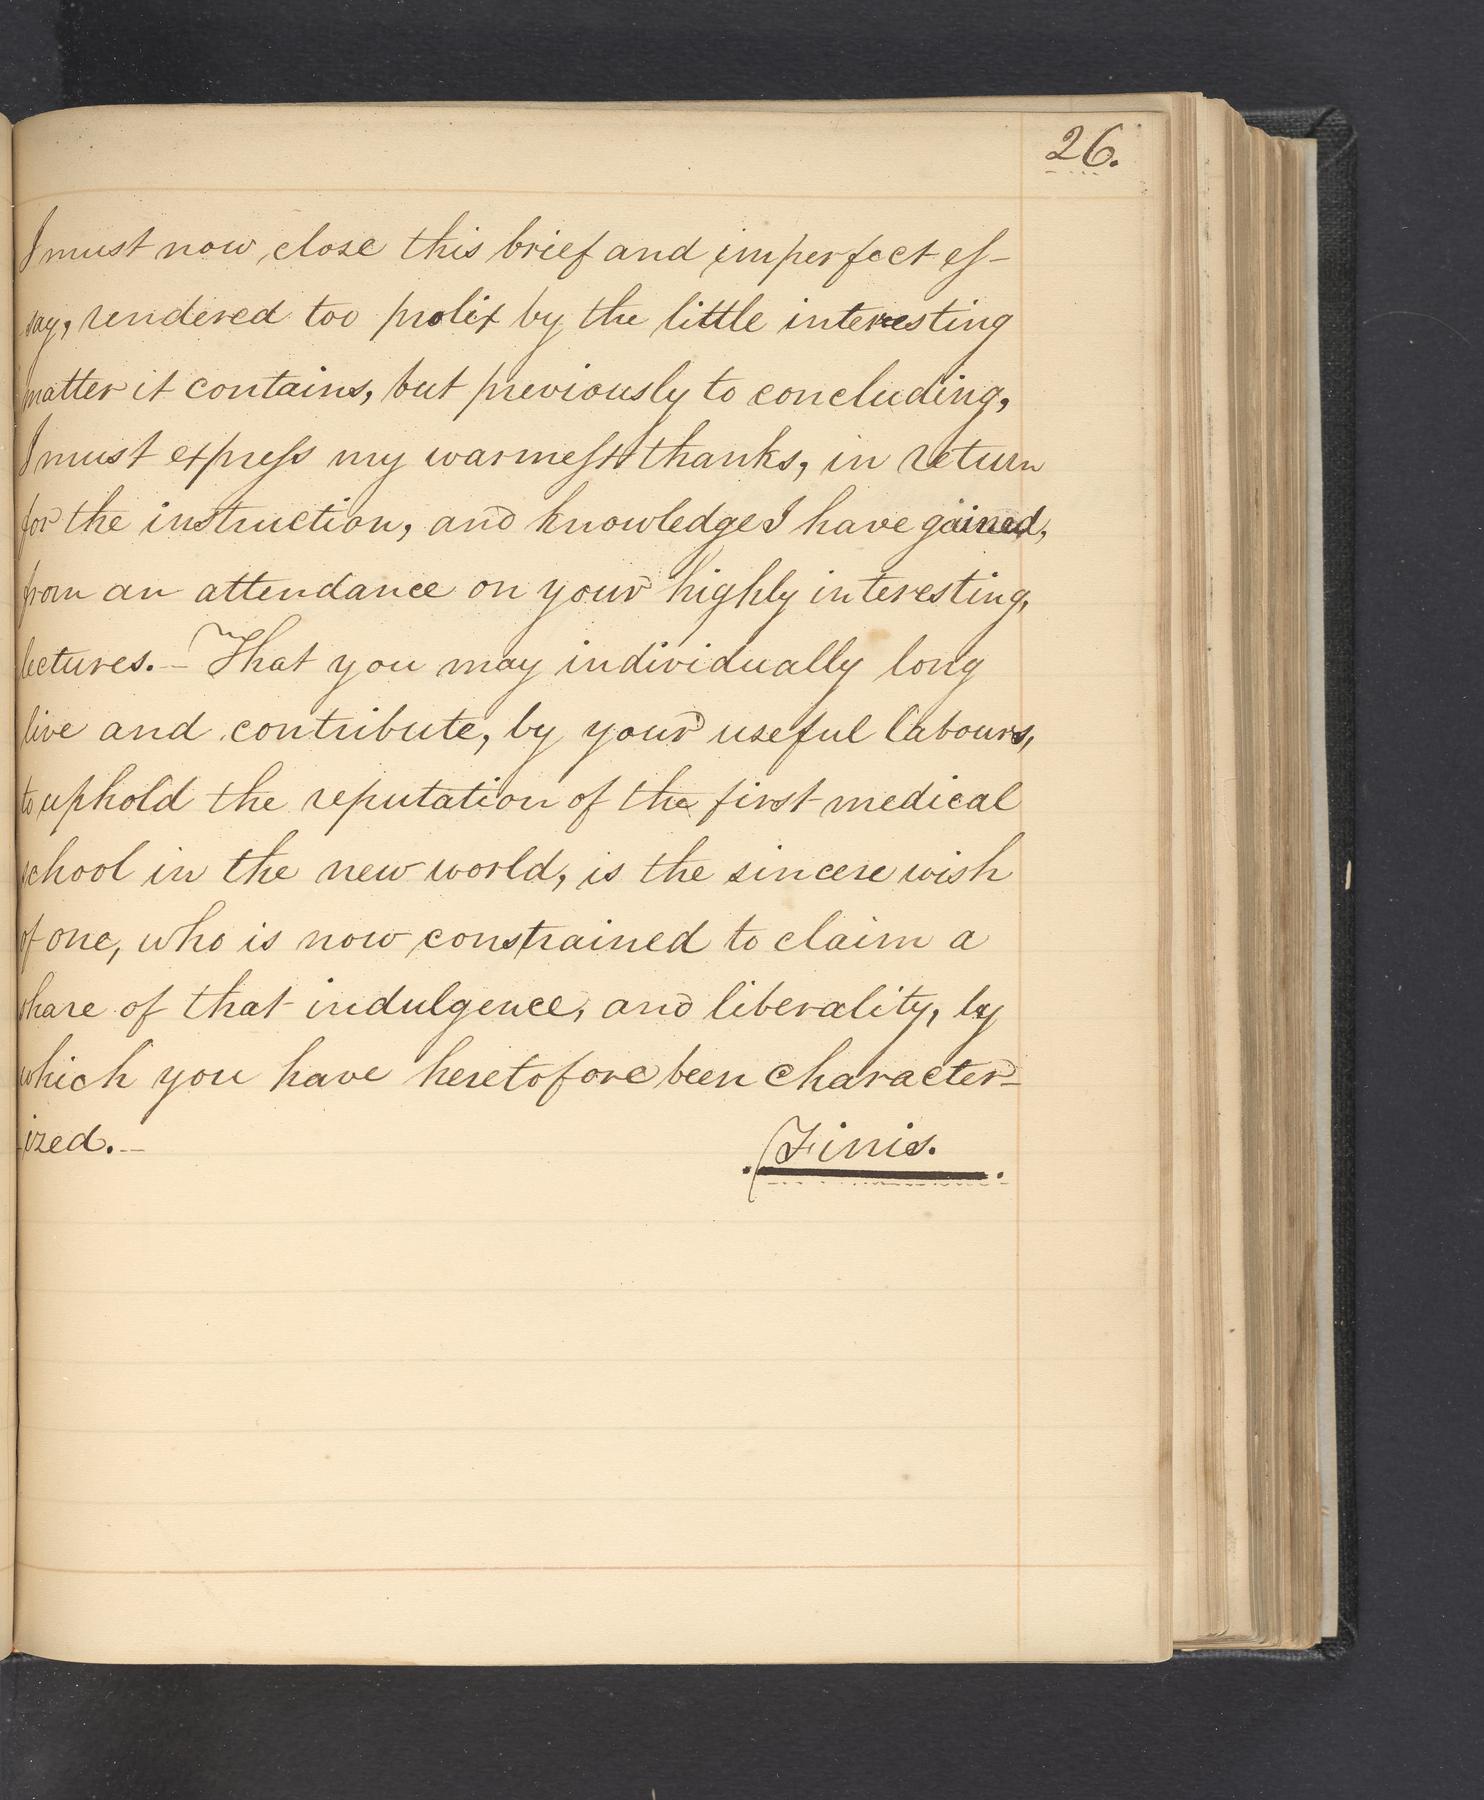 26.
I must now close this brief and imperfect es-
say, rendered too prolix by the little interesting
matter it contains, but previously to concluding,
I must express my warmest thanks, in return
for the instruction, and knowledge I have gained,
from an attendance on your highly interesting,
lectures. - That you may individually long
live and contribute, by your useful labours,
to uphold the reputation of the first medical
school in the new world, is the sincere wish
of one, who is now constrained to claim a
share of that indulgence, and liberality, by
which you have heretofore been character-
ized. -
Finis.